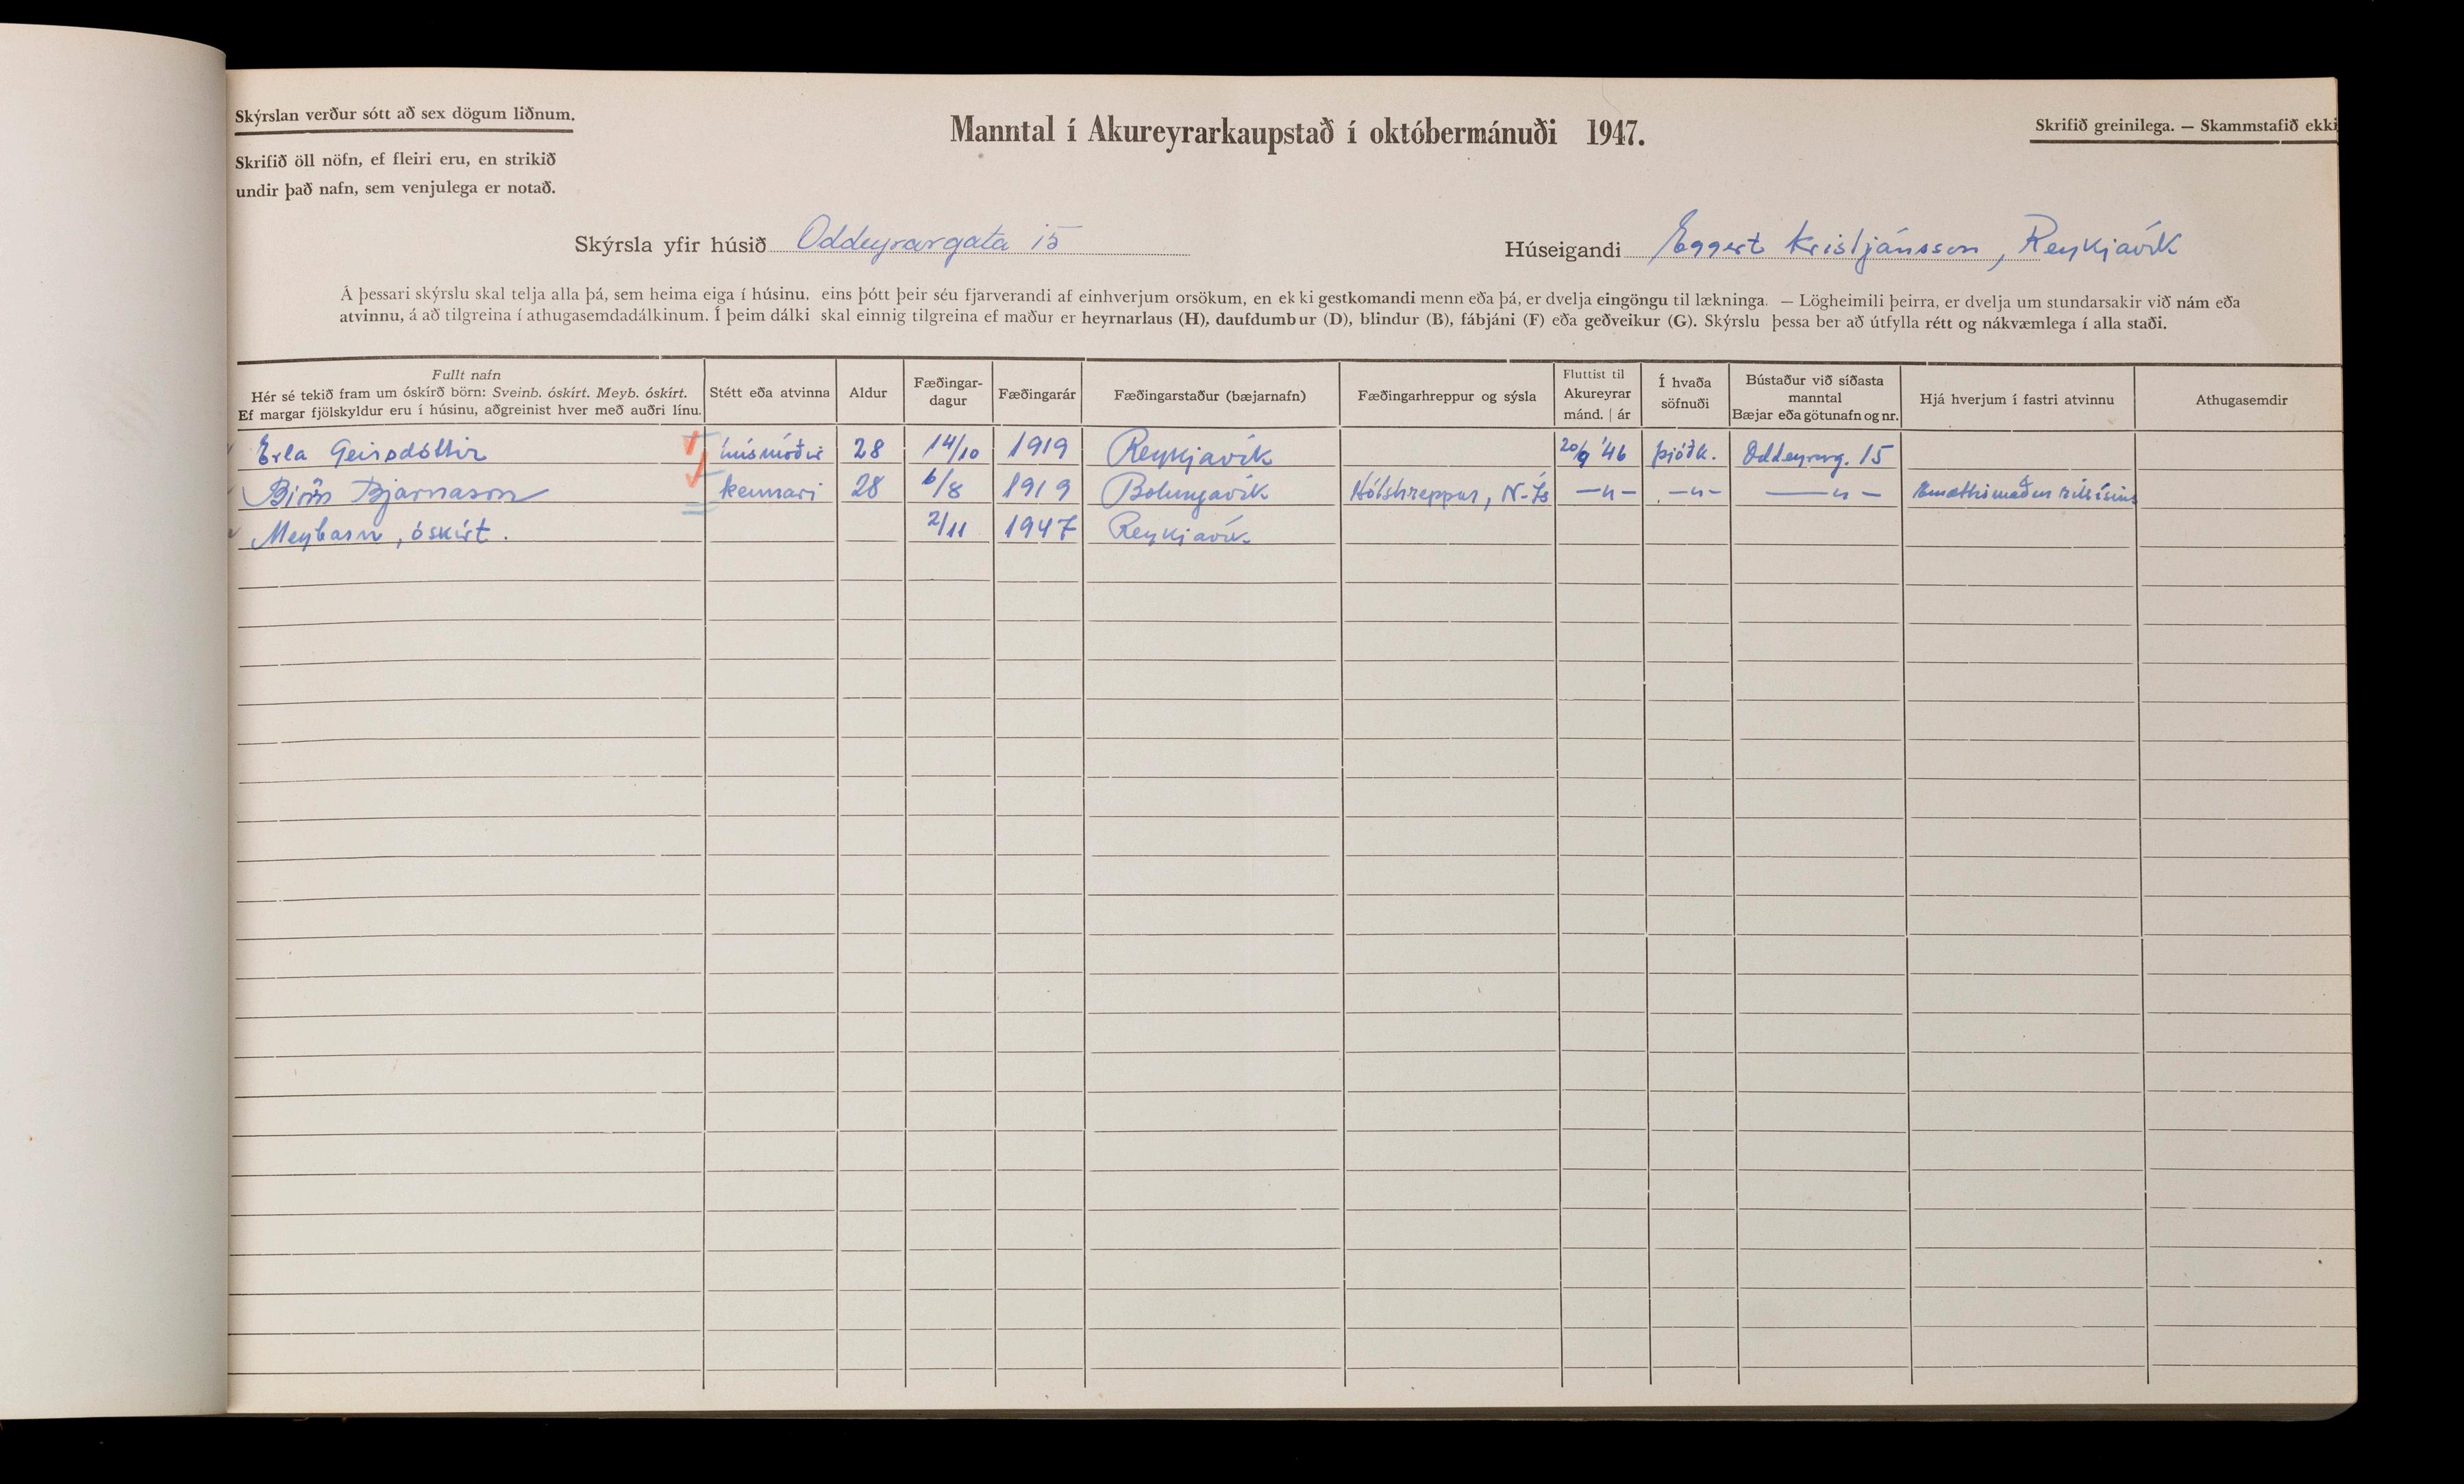 Skýrslan verður sótt að sex dögum liðnum.
Skrifið öll nöfn, ef fleiri eru, en strikið
undir það nafn, sem venjulega er notað.
Manntal í Akureyrarkaupstað í októbermánuði 1947.
Skrifið greinilega. — Skammstafið ekki
Skýrsla yfir húsið Oddeyrargata 15
Húseigandi Eggert Kristjánsson, Reykjavík
Á þessari skýrslu skal telja alla þá, sem heima eiga í húsinu, eins þótt þeir séu fjarverandi af einhverjum orsökum, en ekki gestkomandi menn eða þá, er dvelja eingöngu til lækninga. — Lögheimili þeirra, er dvelja um stundarsakir við nám eða
atvinnu, á að tilgreina í athugasemdadálkinum. Í þeim dálki skal einnig tilgreina ef maður er heyrnarlaus (H), daufdumbur (D), blindur (B), fábjáni (F) eða geðveikur (G). Skýrslu þessa ber að útfylla rétt og nákvæmlega í alla staði.
Fullt nafn
Hér sé tekið fram um óskírð börn: Sveinb. óskírt. Meyb. óskírt.
Ef margar fjölskyldur eru í húsinu, aðgreinist hver með auðri línu.
Stétt eða atvinna
Aldur
Fæðingar-
dagur
Fæðingarár
Fæðingarstaður (bæjarnafn)
Fæðingarhreppur og sýsla
Fluttist til
Akureyrar
mánd. | ár
Í hvaða
söfnuði
Bústaður við síðasta
manntal
Bæjar eða götunafn og nr.
Hjá hverjum í fastri atvinnu
Athugasemdir
Erla Geirsdóttir húsmóðir 28 14/10 1919 Reykjavík 20/9 '46 þjóðk. Oddeyrarg. 15
Björn Bjarnason kennari 28 6/8 1919 Bolungavík Hólshreppur, N-Ís —"— —"— —"— ríkisins
Meybarn, óskírt. 2/11 1947 Reykjavík